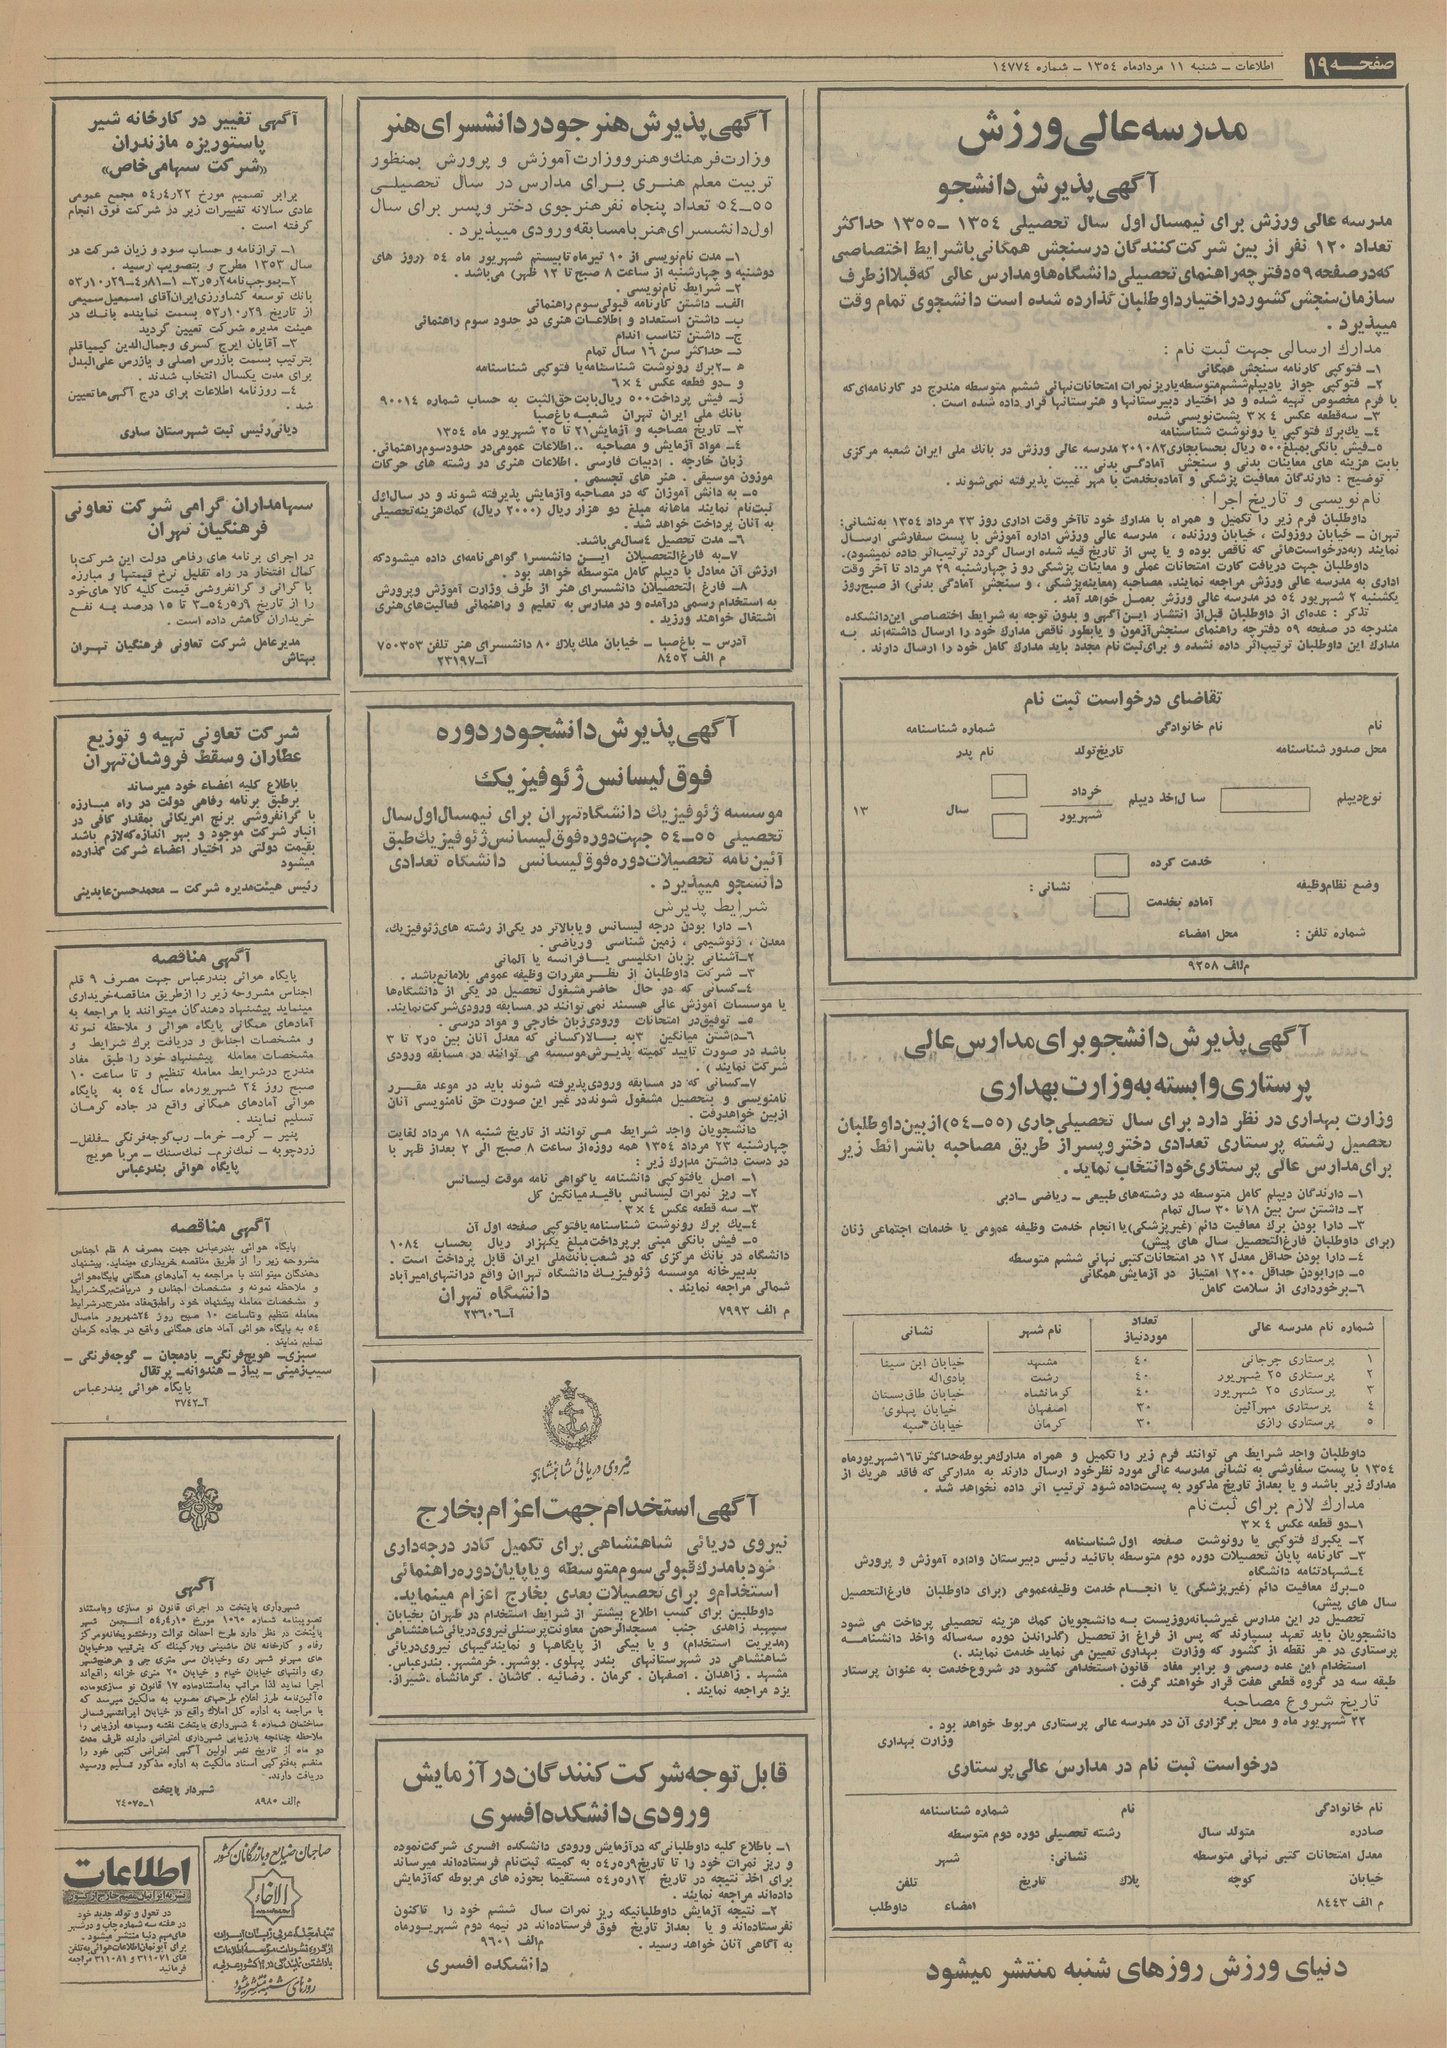 صفحه ۱۹
اطلاعات ـ شنبه ۱۱ مردادماه ۱۳۵۴ ـ شماره ۱۴۷۷۴
مدرسه عالی ورزش
آگهی پذیرش دانشجو
مدرسه عالی ورزش برای نیمسال اول سال تحصیلی ۱۳۵۴ ـ۱۳۵۵ حداکثر
تعداد ۱۲۰ نفر از بین شرکت‌کنندگان درسنجش همگانی باشرایط اختصاصی
که در صفحه ۵۹ دفترچه راهنمای تحصیلی دانشگاه‌ها و مدارس عالی که قبلا از طرف
سازمان سنجش کشور در اختیار داوطلبان گذارده شده است دانشجوی تمام وقت
میپذیرد .
مدارک ارسالی جهت ثبت نام :
۱ـ فتوکپی کارنامه سنجش همگانی
۲ـ فتوکپی جواز یا دیپلم ششم متوسطه یا ریز نمرات امتحانات نهائی ششم متوسطه مندرج در کارنامه‌ای که
با فرم مخصوص تهیه شده و در اختیار دبیرستانها و هنرستانها قرار داده شده است .
۳ـ سه‌قطعه عکس ۴×۳ پشت‌نویسی شده
۴ـ یك‌برك فتوکپی یا رونوشت شناسنامه
۵ـ فیش بانکی بمبلغ ۵۰۰ ریال بحسابجاری ۲۰۱۰۸۲ مدرسه عالی ورزش در بانك ملی ایران شعبه مرکزی
بابت هزینه های معاینات بدنی و سنجش آمادگی بدنی ... .
توضیح : دارندگان معافیت پزشکی و آماده‌بخدمت با مهر غیبت پذیرفته نمی‌شوند .
نام‌نویسی و تاریخ اجرا :
داوطلبان فرم زیر را تکمیل و همراه با مدارک خود تا آخر وقت اداری روز ۲۳ مرداد ۱۳۵۴ به‌نشانی:
تهران ـ خیابان روزولت ، خیابان ورزنده ، مدرسه عالی ورزش اداره آموزش با پست سفارشی ارسال
نمایند (به‌درخواست‌هائی که ناقص بوده و یا پس از تاریخ قید شده ارسال گردد ترتیب‌اثر داده نمیشود).
داوطلبان جهت دریافت کارت امتحانات عملی و معاینات پزشکی روز چهارشنبه ۲۹ مرداد تا آخر وقت
اداری به مدرسه عالی ورزش مراجعه نمایند. مصاحبه (معاینه‌پزشکی ، و سنجش آمادگی بدنی) از صبح‌روز
یکشنبه ۲ شهریور ۵۴ در مدرسه عالی ورزش بعمل خواهد آمد .
تذکر : عده‌ای از داوطلبان قبل از انتشار این آگهی و بدون توجه به شرایط اختصاصی این دانشکده
مندرجه در صفحه ۵۹ دفترچه راهنمای سنجش‌آزمون و یا بطور ناقص مدارک خود را ارسال داشته‌اند به
مدارك این داوطلبان ترتیب‌اثر داده نشده و برای ثبت‌نام مجدد باید مدارک کامل خود را ارسال دارند .
تقاضای درخواست ثبت نام
نام نام خانوادگی شماره شناسنامه
محل صدور شناسنامه تاریخ تولد نام پدر
نوع‌دیپلم سال‌اخذ دیپلم خرداد شهریور سال ۱۳
وضع نظام‌وظیفه خدمت کرده آماده بخدمت نشانی :
شماره تلفن : محل امضاء
م‌الف ۹۲۵۸
آگهی پذیرش دانشجو برای مدارس عالی
پرستاری وابسته به وزارت بهداری
وزارت بهداری در نظر دارد برای سال تحصیلی جاری (۵۵ـ۵۴) از بین داوطلبان
تحصیل رشته پرستاری تعدادی دختر و پسر از طریق مصاحبه باشرائط زیر
برای مدارس عالی پرستاری خود انتخاب نماید .
۱ـ دارندگان دیپلم کامل متوسطه در رشته‌های طبیعی ـ ریاضی ـ ادبی
۲ـ داشتن سن بین ۱۸ تا ۳۰ سال تمام
۳ـ دارا بودن برك معافیت دائم (غیرپزشکی) یا انجام خدمت وظیفه عمومی یا خدمات اجتماعی زنان
(برای داوطلبان فارغ‌التحصیل سال های پیش)
۴ـ دارا بودن حداقل معدل ۱۲ در امتحانات‌کتبی نهائی ششم متوسطه
۵ـ دارا بودن حداقل ۱۲۰۰ امتیاز در آزمایش همگانی
۶ـ برخورداری از سلامت کامل
شماره نام مدرسه عالی تعداد موردنیاز نام شهر نشانی
۱ پرستاری جرجانی ۴۰ مشهد خیابان ابن سینا
۲ پرستاری ۲۵ شهریور ۴۰ رشت بادی‌اله
۳ پرستاری ۲۵ شهریور ۴۰ کرمانشاه خیابان طاق‌بستان
۴ پرستاری مهرآئین ۳۰ اصفهان خیابان پهلوی
۵ پرستاری رازی ۳۰ کرمان خیابان سبه
داوطلبان واجد شرایط می توانند فرم زیر را تکمیل و همراه مدارك مربوطه حداکثر تا ۱۶ شهریورماه
۱۳۵۴ با پست سفارشی به نشانی مدرسه عالی مورد نظر خود ارسال دارند به مدارکی که فاقد هریك از
مدارك زیر باشد و یا بعداز تاریخ مذکور به پست‌داده شود ترتیب اثر داده نخواهد شد .
مدارك لازم برای ثبت‌نام
۱ـ دو قطعه عکس ۴×۳
۲ـ یکبرك فتوکپی یا رونوشت صفحه اول شناسنامه
۳ـ کارنامه پایان تحصیلات دوره دوم متوسطه باتائید رئیس دبیرستان و اداره آموزش و پرورش
۴ـ شهادتنامه دانشگاه
۵ـ برك معافیت دائم (غیرپزشکی) یا انجام خدمت وظیفه‌عمومی (برای داوطلبان فارغ‌التحصیل
سال های پیش)
تحصیل در این مدارس غیرشبانه‌روزیست به دانشجویان کمك هزینه تحصیلی پرداخت می شود
دانشجویان باید تعهد بسپارند که پس از فراغ از تحصیل (گذراندن دوره سه‌ساله واخذ دانشنامه
پرستاری در هر نقطه از کشور که وزارت بهداری تعیین می نماید خدمت نمایند .)
استخدام این عده رسمی و برابر مفاد قانون استخدامی کشور در شروع‌خدمت به عنوان پرستار
طبقه سه در گروه قطعی هفت قرار خواهند گرفت .
تاریخ شروع مصاحبه
۲۲ شهریور ماه و محل برگزاری آن در مدرسه عالی پرستاری مربوط خواهد بود .
وزارت بهداری
درخواست ثبت نام در مدارس عالی پرستاری
نام خانوادگی نام شماره شناسنامه
صادره متولد سال رشته تحصیلی دوره دوم متوسطه
معدل امتحانات کتبی نهائی متوسطه نشانی: شهر
خیابان کوچه پلاك تاریخ تلفن
م الف ۸۴۴۳ امضاء داوطلب
دنیای ورزش روزهای شنبه منتشر میشود
آگهی پذیرش هنرجو در دانشسرای هنر
وزارت فرهنك و هنر و وزارت آموزش و پرورش بمنظور
تربیت معلم هنری برای مدارس در سال تحصیلی
۵۵ـ۵۴ تعداد پنجاه نفر هنرجوی دختر و پسر برای سال
اول دانشسرای هنر با مسابقه ورودی میپذیرد .
۱ـ مدت نام‌نویسی از ۱۰ تیرماه تا بیستم شهریور ماه ۵۴ (روز های
دوشنبه و چهارشنبه از ساعت ۸ صبح تا ۱۲ ظهر) می‌باشد .
۲ـ شرایط نام‌نویسی .
الف ـ داشتن کارنامه قبولی سوم راهنمائی
ب ـ داشتن استعداد و اطلاعات هنری در حدود سوم راهنمائی
ج ـ داشتن تناسب اندام
د ـ حداکثر سن ۱۶ سال تمام
ه ـ ۲برك رونوشت شناسنامه یا فتوکپی شناسنامه
و ـ دو قطعه عکس ۴×۶
ز ـ فیش پرداخت ۵۰۰ ریال بابت حق‌الثبت به حساب شماره ۹۰۰۱۴
بانك ملی ایران تهران شعبه باغ‌صبا
۳ـ تاریخ مصاحبه و آزمایش ۲۱ تا ۲۵ شهریور ماه ۱۳۵۴
۴ـ مواد آزمایش و مصاحبه .. اطلاعات عمومی در حدود سوم راهنمائی.
زبان خارجه . ادبیات فارسی . اطلاعات هنری در رشته های حرکات
موزون موسیقی . هنر های تجسمی .
۵ـ به دانش آموزان که در مصاحبه و آزمایش پذیرفته شوند و در سال اول
ثبت‌نام نمایند ماهانه مبلغ دو هزار ریال (۲۰۰۰ ریال) کمك‌هزینه‌تحصیلی
به آنان پرداخت خواهد شد .
۶ـ مدت تحصیل ۴سال می‌باشد.
۷ـ به فارغ‌التحصیلان این دانشسرا گواهی‌نامه‌ای داده میشودکه
ارزش آن معادل با دیپلم کامل متوسطه خواهد بود .
۸ـ فارغ التحصیلان دانشسرای هنر از طرف وزارت آموزش وپرورش
به استخدام رسمی درآمده و در مدارس به تعلیم و راهنمائی فعالیت‌های‌هنری
اشتغال خواهند ورزید .
آدرس ـ باغ‌صبا ـ خیابان ملك پلاك ۸۰ دانشسرای هنر تلفن ۷۵۰۳۵۳
م الف ۸۴۵۲ آـ۲۳۱۹۷
آگهی پذیرش دانشجو در دوره
فوق لیسانس ژئوفیزیك
موسسه ژئوفیزیك دانشگاه تهران برای نیمسال اول سال
تحصیلی ۵۵ـ۵۴ جهت دوره فوق لیسانس ژئوفیزیك طبق
آئین‌نامه تحصیلات دوره فوق لیسانس دانشگاه تعدادی
دانشجو میپذیرد .
شرایط پذیرش
۱ـ دارا بودن درجه لیسانس و یا بالاتر در یکی از رشته های ژئوفیزیك،
معدن ، ژئوشیمی ، زمین شناسی و ریاضی .
۲ـ آشنائی بزبان انگلیسی یا فرانسه یا آلمانی
۳ـ شرکت داوطلبان از نظر مقررات وظیفه عمومی بلامانع‌باشد .
۴ـ کسانی که در حال حاضر مشغول تحصیل در یکی از دانشگاه‌ها
یا موسسات آموزش عالی هستند نمی توانند در مسابقه ورودی شرکت نمایند.
۵ـ توفیق در امتحانات ورودی زبان خارجی و مواد درسی .
۶ـ داشتن میانگین ۳ به بالا (کسانی که معدل آنان بین ۲ر۵ تا ۳
باشد در صورت تایید کمیته پذیرش موسسه می توانند در مسابقه ورودی
شرکت نمایند ) .
۷ـ کسانی که در مسابقه ورودی پذیرفته شوند باید در موعد مقرر
نامنویسی و بتحصیل مشغول شوند در غیر این صورت حق نامنویسی آنان
ازبین خواهد رفت .
دانشجویان واجد شرایط می توانند از تاریخ شنبه ۱۸ مرداد لغایت
چهارشنبه ۲۲ مرداد ۱۳۵۴ همه روزه از ساعت ۸ صبح الی ۲ بعداز ظهر با
در دست داشتن مدارك زیر :
۱ـ اصل یا فتوکپی دانشنامه یا گواهی نامه موقت لیسانس
۲ـ ریز نمرات لیسانس باقید میانگین کل
۳ـ سه قطعه عکس ۴×۳
۴ـ یك برك رونوشت شناسنامه یا فتوکپی صفحه اول آن
۵ـ فیش بانکی مبنی بر پرداخت مبلغ یکهزار ریال بحساب ۱۰۸۴
دانشگاه در بانك مرکزی که در شعب بانك ملی ایران قابل پرداخت است .
بدبیرخانه موسسه ژئوفیزیك دانشگاه تهران واقع در انتهای امیرآباد
شمالی مراجعه نمایند .
دانشگاه تهران
م الف ۷۹۹۳ آـ۲۳۶۰۶
نیروی دریائی شاهنشاهی
آگهی استخدام جهت اعزام بخارج
نیروی دریائی شاهنشاهی برای تکمیل کادر درجه‌داری
خود با مدرك قبولی سوم متوسطه و یا پایان دوره راهنمائی
استخدام و برای تحصیلات بعدی بخارج اعزام مینماید.
داوطلبین برای کسب اطلاع بیشتر از شرایط استخدام در طهران بخیابان
سپهبد زاهدی جنب مسجدالرحمن معاونت پرسنلی نیروی دریائی شاهنشاهی
(مدیریت استخدام) و یا بیکی از پایگاهها و نمایندگیهای نیروی دریائی
شاهنشاهی در شهرستانهای بندر پهلوی . بوشهر . خرمشهر . بندرعباس.
مشهد . زاهدان . اصفهان . کرمان . رضائیه . کاشان . کرمانشاه . شیراز.
یزد مراجعه نمایند .
قابل توجه شرکت کنندگان در آزمایش
ورودی دانشکده افسری
۱ـ باطلاع کلیه داوطلبانی که در آزمایش ورودی دانشکده افسری شرکت‌نموده
و ریز نمرات خود را تا تاریخ ۵۴ر۵ر۹ به کمیته ثبت‌نام فرستاده‌اند میرساند
برای اخذ نتیجه در تاریخ ۵۴ر۵ر۱۲ مستقیما بحوزه های مربوطه که آزمایش
داده‌اند مراجعه نمایند .
۲ـ نتیجه آزمایش داوطلبانیکه ریز نمرات سال ششم خود را تاکنون
نفرستاده‌اند و یا بعداز تاریخ فوق فرستاده‌اند در نیمه دوم شهریورماه
به آگاهی آنان خواهد رسید .
م‌الف ۹۶۰۱
دانشکده افسری
آگهی تغییر در کارخانه شیر
پاستوریزه مازندران
«شرکت سهامی‌خاص»
برابر تصمیم مورخ ۵۴ر۴ر۲۲ مجمع عمومی
عادی سالانه تغییرات زیر در شرکت فوق انجام
گرفته است .
۱ـ ترازنامه و حساب سود و زیان شرکت در
سال ۱۳۵۳ مطرح و بتصویب رسید .
بانك توسعه کشاورزی ایران آقای اسمعیل سمیعی
از تاریخ ۵۳ر۱۰ر۲۹ بسمت نماینده بانك در
هیئت مدیره شرکت تعیین گردید
۳ـ آقایان ایرج کسری و جمال‌الدین کیمیاقلم
بترتیب بسمت بازرس اصلی و بازرس علی‌البدل
برای مدت یکسال انتخاب شدند .
۴ـ روزنامه اطلاعات برای درج آگهی‌ها تعیین
شد .
دیانی رئیس ثبت شهرستان ساری
سهامداران گرامی شرکت تعاونی
فرهنگیان تهران
در اجرای برنامه های رفاهی دولت این شرکت با
کمال افتخار در راه تقلیل نرخ قیمتها و مبارزه
با گرانی و گرانفروشی قیمت کلیه کالا های‌خود
را از تاریخ ۵۴ر۵ر۹ ۳ تا ۱۵ درصد به نفع
خریداران کاهش داده است .
مدیرعامل شرکت تعاونی فرهنگیان تهران
بهتاش
شرکت تعاونی تهیه و توزیع
عطاران و سقط فروشان تهران
باطلاع کلیه اعضاء خود میرساند
برطبق برنامه رفاهی دولت در راه مبارزه
با گرانفروشی برنج امریکائی بمقدار کافی در
انبار شرکت موجود و بهر اندازه‌که‌لازم باشد
بقیمت دولتی در اختیار اعضاء شرکت گذارده
میشود
رئیس هیئت‌مدیره شرکت ـ محمدحسن‌عابدینی
آگهی مناقصه
پایگاه هوائی بندرعباس جهت مصرف ۹ قلم
اجناس مشروحه زیر را از طریق مناقصه خریداری
مینماید پیشنهاد دهندگان میتوانند با مراجعه به
آمادهای همگانی پایگاه هوائی و ملاحظه نمونه
و مشخصات اجناس و دریافت برك شرایط و
مشخصات معامله پیشنهاد خود را طبق مفاد
مندرج در شرایط معامله تنظیم و تا ساعت ۱۰
صبح روز ۲۴ شهریورماه سال ۵۴ به پایگاه
هوائی آمادهای همگانی واقع در جاده کرمان
تسلیم نمایند .
پنیر ـ کره ـ خرما ـ رب گوجه‌فرنگی ـ فلفل ـ
زردچوبه ـ نمك‌نرم ـ نمك‌سنك ـ مربا هویج
پایگاه هوائی بندرعباس
آگهی مناقصه
پایگاه هوائی بندرعباس جهت مصرف ۸ قلم اجناس
مشروحه زیر را از طریق مناقصه خریداری مینماید. پیشنهاد
دهندگان میتوانند با مراجعه به آمادهای همگانی پایگاه هوائی
و ملاحظه نمونه و مشخصات اجناس و دریافت برگ شرایط
و مشخصات معامله پیشنهاد خود را طبق مفاد مندرج در شرایط
معامله تنظیم و تا ساعت ۱۰ صبح روز ۲۴ شهریور ماه سال
۵۴ به پایگاه هوائی آماد های همگانی واقع در جاده کرمان
تسلیم نمایند .
سبزی ـ هویج فرنگی ـ بادمجان ـ گوجه‌فرنگی ـ
سیب‌زمینی ـ پیاز ـ هندوانه ـ پرتقال
پایگاه هوائی بندرعباس
آـ۳۷۴۲
آگهی
شهرداری پایتخت در اجرای قانون نو سازی و باستناد
تصویبنامه شماره ۱۰۶۰ مورخ ۵۴ر۴ر۱۰ انجمن شهر
پایتخت در نظر دارد طرح احداث توالت و رختشویخانه و مرکز
رفاه و کارخانه نان ماشینی و پارکینك که بترتیب در خیابان
های مهرنو شهر ری و خیابان سی متری جی و
ری و انتهای خیابان خیام و خیابان ۲۰ متری خزانه واقع‌اند
اجرا نماید لذا مراتب به‌استناد ماده ۱۷ قانون نو سازی و ماده
۵ آئین‌نامه طرز اعلام طرحهای مصوب به مالکین میرسد که
با مراجعه به اداره کل املاك واقع در خیابان ایرانشهر شمالی
ساختمان شماره ۴ شهرداری پایتخت نقشه و سیاهه ارزیابی را
ملاحظه چنانچه بارزیابی شهرداری اعتراض دارند ظرف مدت
دو ماه از تاریخ نشر اولین آگهی اعتراض کتبی خود را
منضم به فتوکپی اسناد مالکیت به اداره مذکور تسلیم و رسید
دریافت دارند.
شهردار پایتخت
م‌الف ۸۹۸۰ ۱ـ۲۴۰۷۵
صاحبان صنایع و بازرگانان کشور
الاخاء
تنها مجله عربی زبان ایران
از گروه نشریات مؤسسه اطلاعات
روزهای شنبه منتشر میشود
اطلاعات
نشریه ایرانیان مقیم خارج از کشور
در تحول و تولد جدید خود
در هفته سه شماره چاپ و در شهر
های مهم دنیا منتشر میشود .
برای آبونمان اطلاعات هوائی به تلفن
های ۳۱۱۰۷۱ و ۳۱۱۰۸۱ مراجعه
فرمائید